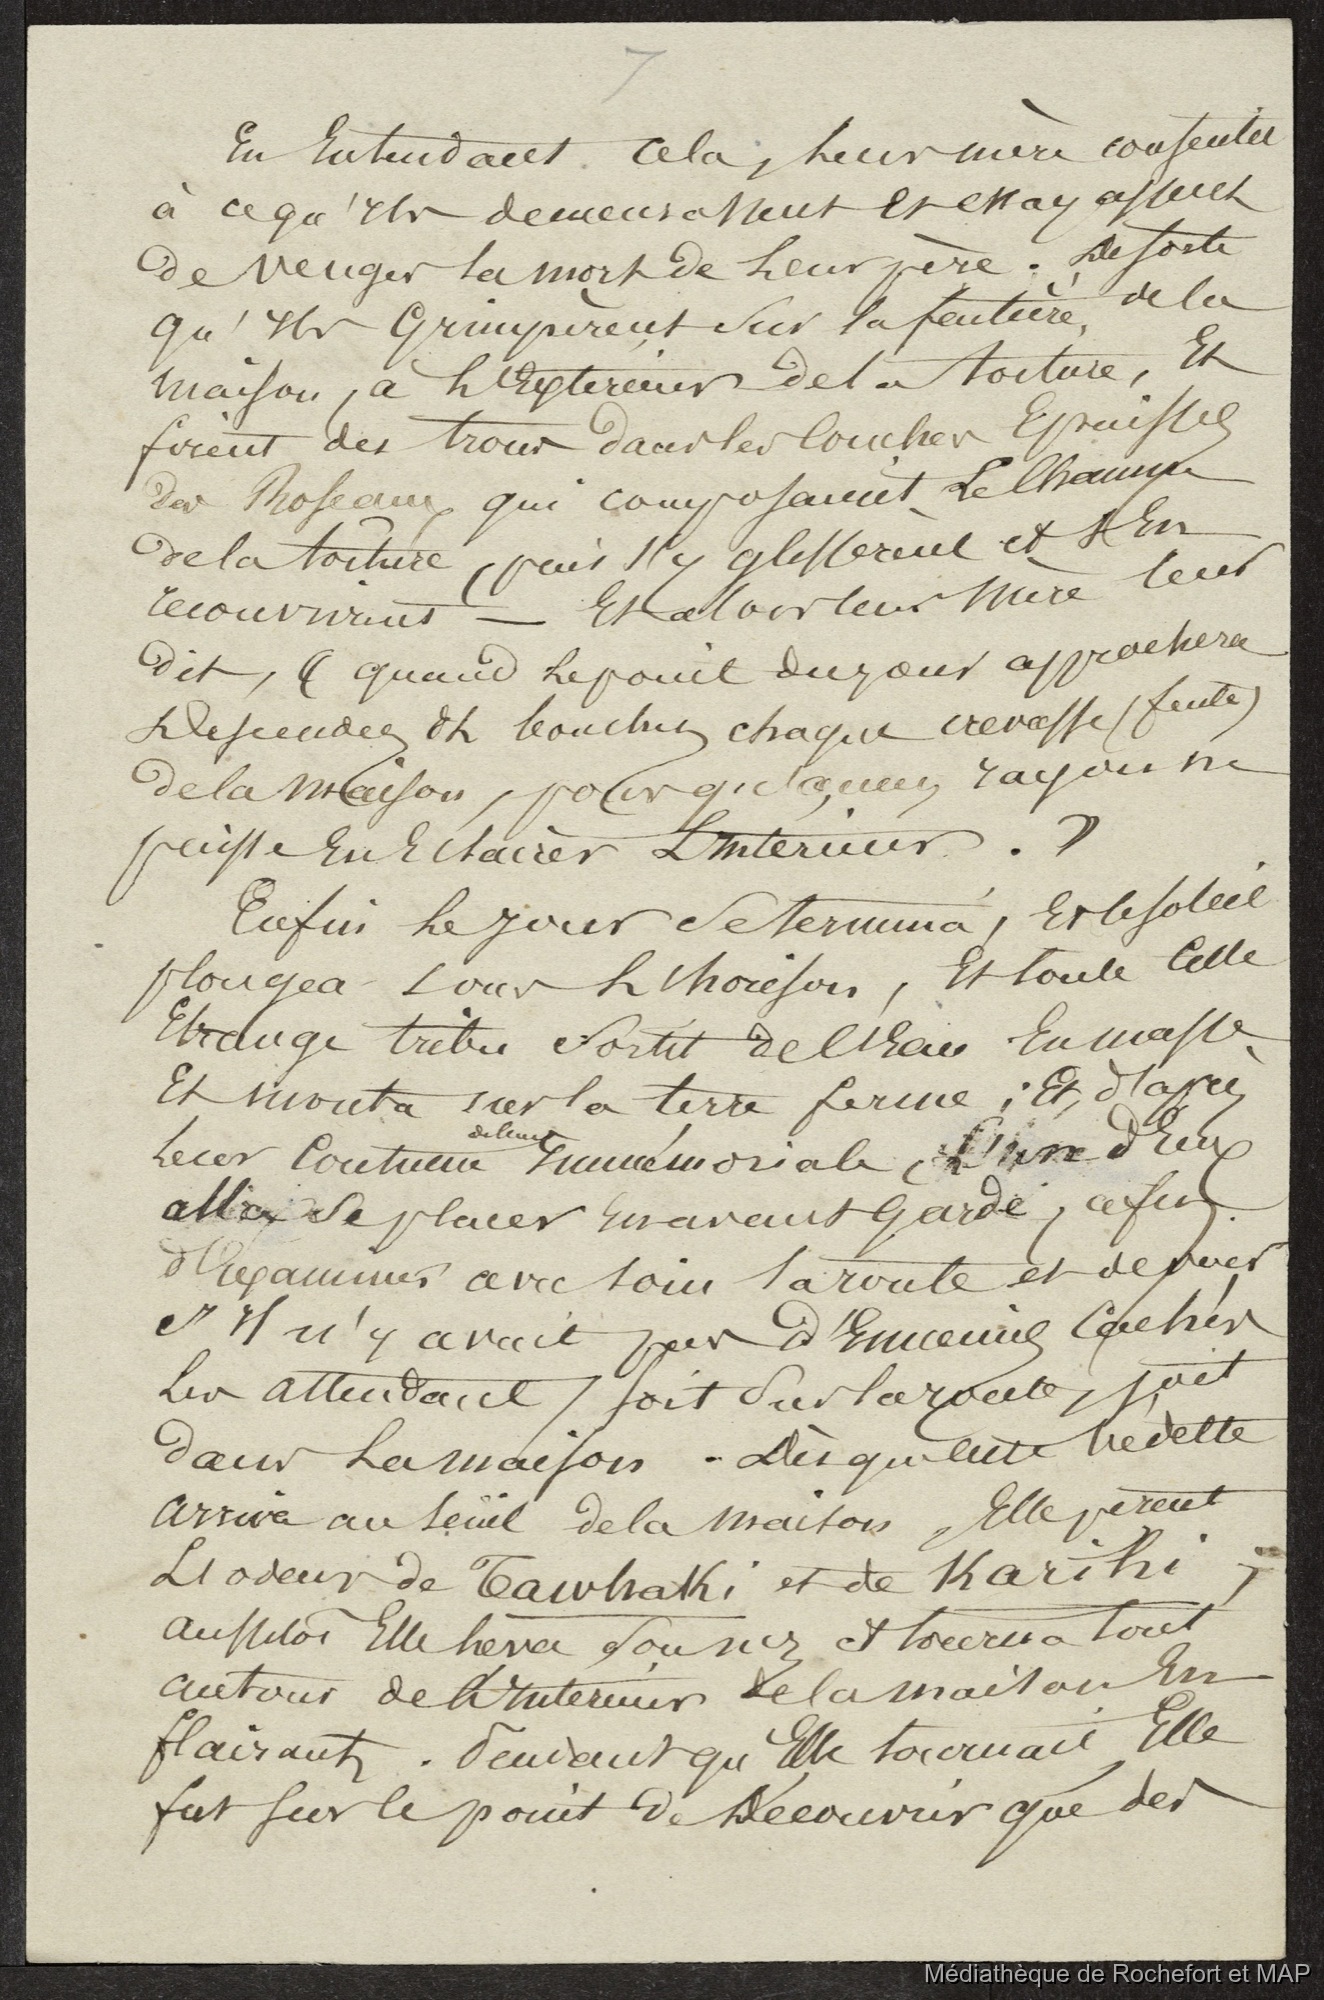 7
En Entendant cela, leur mère consentit
à ce qu'Ils demeurassent et essayassent
de venger la mort de leur père. De sorte
qu'Ils Grimpèrent sur la feutière, de la
maison, à L'Exterieur de la toiture, Et
firent des trous dans les couches Epaisses
des Roseaux qui composaient Le Chaume
de la toiture, puis s'y glisserent et s'En
recouvrirent — Et alors leur Mère leur
dit, « quand le point du jour approchera
Descendez et bouchez chaque crevasse (fente)
de la Maison, pour qu'aucun rayon ne
puisse En Eclairer L'Interieur. »
Enfin le jour se termina, Et le soleil
plongea sous l'horison, Et toute Cette
Etrange tribu sortit de l'Eau En masse
Et monta sur la terre ferme ; Et, d'après
leur Coutume de temps Immémoriale, L'une d'Eux
alla se placer En avant Garde, afin
d'Examiner avec soin la route et de voir
s'Il n'y avait pas d'Ennemis Cachés
Les attendant, soit sur la route, soit
dans La maison. Dès que cette Vedette
arriva au seuil de la Maison, Elle perçut
L'odeur de Tawhaki et de Karihi ;
aussitôt Elle leva son nez et tourna tout
autour de L'Interieur de la maison En
flairant. Pendant qu'Elle tournait, Elle
fut sur le point de Découvrir que des
Médiathèque de Rochefort et MAP